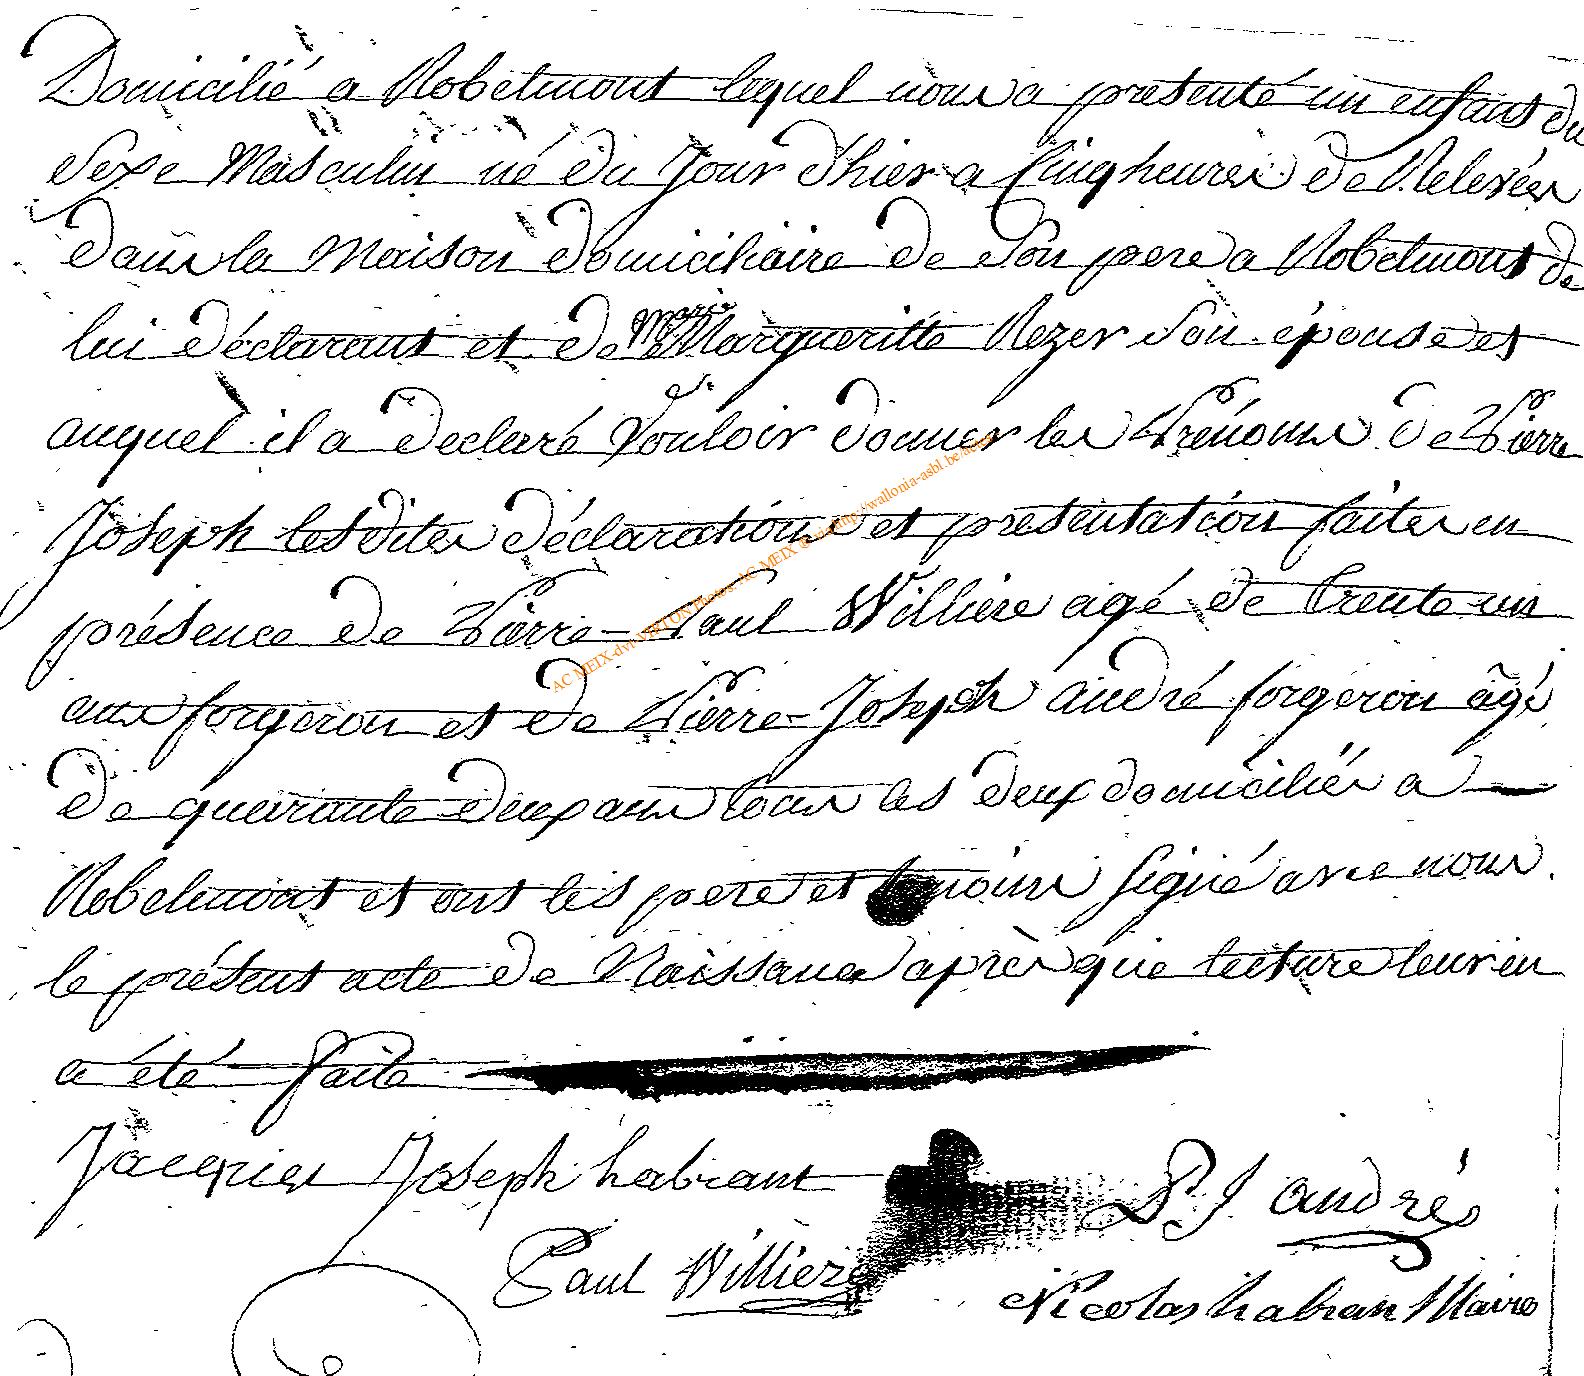 Domicilié a Robelmont lequel nous a presenté un enfant du
Sexe Masculin né du Jour d'hier a Cinq heures de Relevées
dans la Maison domiciliaire de Son pere a Robelmont de
lui déclarant et de Marie Margueritte Rezer Son épouse et
auquel il a declaré Vouloir donner les Prénoms de Pierre
Joseph lesdites déclaration et presentation faites en
présence de Pierre-Paul Willière agé de trente-un
ans forgeron et de Pierre-Joseph andré forgeron âgé
de quarante deux ans tous les deux domiciliés a
Robelmont et ont les pere et temoins signé avec nous.
le présent acte de Naissance après que lecture leur en
a été faite
Jacques Joseph habrant
P. J andré
Paul Willière
Nicolas habran Maire
AC MEIX-dvt-VIRTON